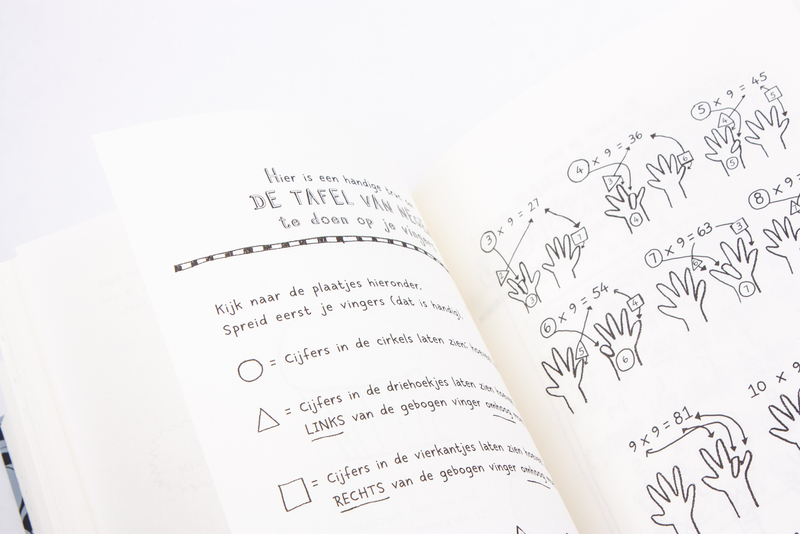 Hier is een handige
DE TAFEL VAN
te doen op je vingers
Kijk naar de plaatjes hieronder.
Spreid eerst je vingers (dat is handig).
= Cijfers in de cirkels laten zien:
= Cijfers in de driehoekjes laten zien
LINKS van de gebogen vinger omhoog
= Cijfers in de vierkantjes laten zien
RECHTS van de gebogen vinger omhoog
3 x 9 = 27
3
4 x 9 = 36
3
6
4
5 x 9 = 45
4
5
5
6 x 9 = 54
5
4
6
7 x 9 = 63
6
3
7
8 x 9
9 x 9 = 81
10 x 9